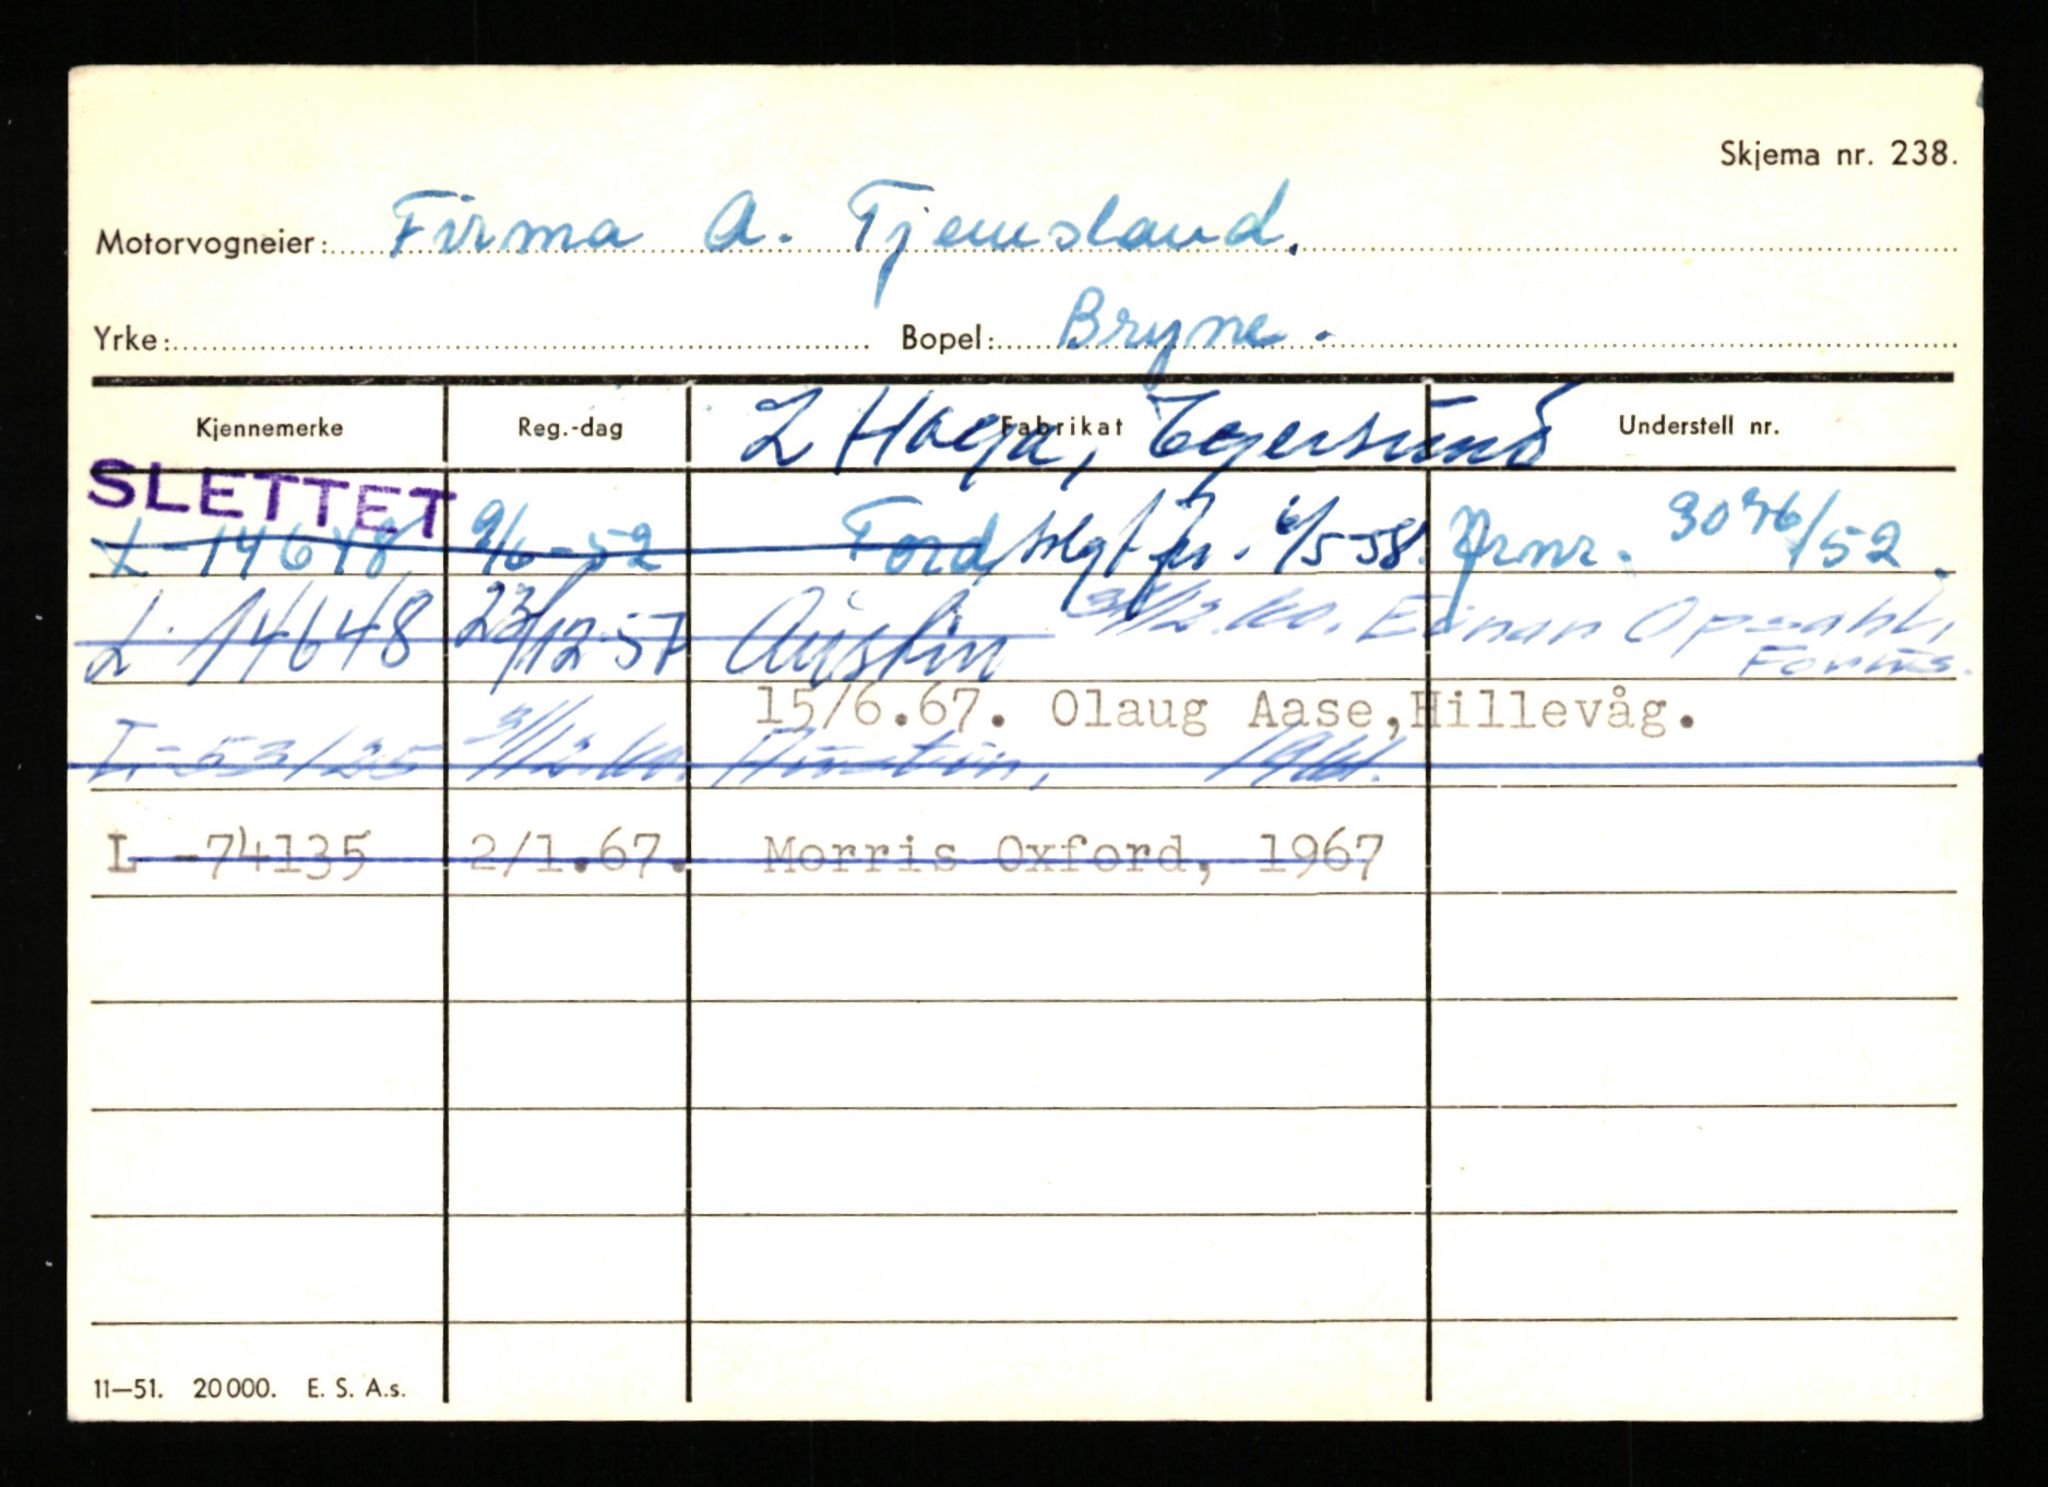 Skjema nr. 238.
Motorvogneier: Firma A. Tjemsland.
Yrke: Bopel: Bryne.
Kjennemerke Reg.-dag Fabrikat Understell nr.
L Haga, Egersund
SLETTET
L-14648 9/6-52 Ford solgt fr. 6/5-58. Prnr. 3076/52.
L-14648 23/12-57 Austin 31/12.60. Einar Opsahl,
Forus.
15/6.67. Olaug Aase,Hillevåg.
31/12.60. Austin, 1961.
L -74135 2/1.67. Morris Oxford, 1967
11—51. 20000. E. S. A.s.